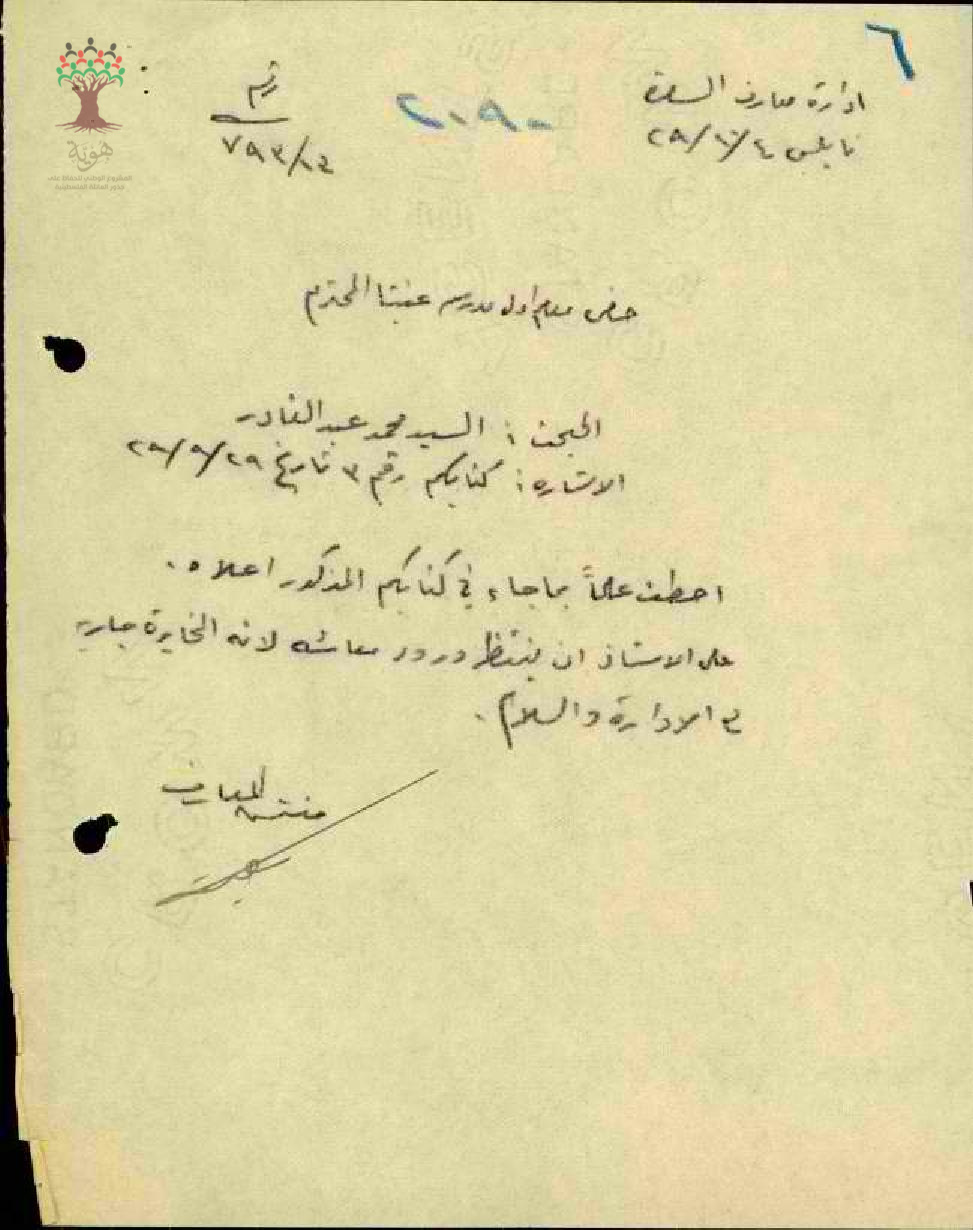 ٦
ادارة معارف السامرة
نابلس ٤/١٠/٢٨
٢٠٨٠
رقم
٧٩٣/١٤
هوية
المشروع الوطني للحفاظ على
جذور العائلة الفلسطينية
حضرة معلم اول مدرسة عنبتا المحترم
المبحث : السيد محمد عبد القادر
الاشارة : كتابكم رقم ٣ تاريخ ٢٩/٩/٢٨
احطت علماً بما جاء في كتابكم المذكور اعلاه .
على الاستاذ ان ينتظر ورود معاشه لانه المخابرة جارية
مع الادارة والسلام .
مفتش المعارف